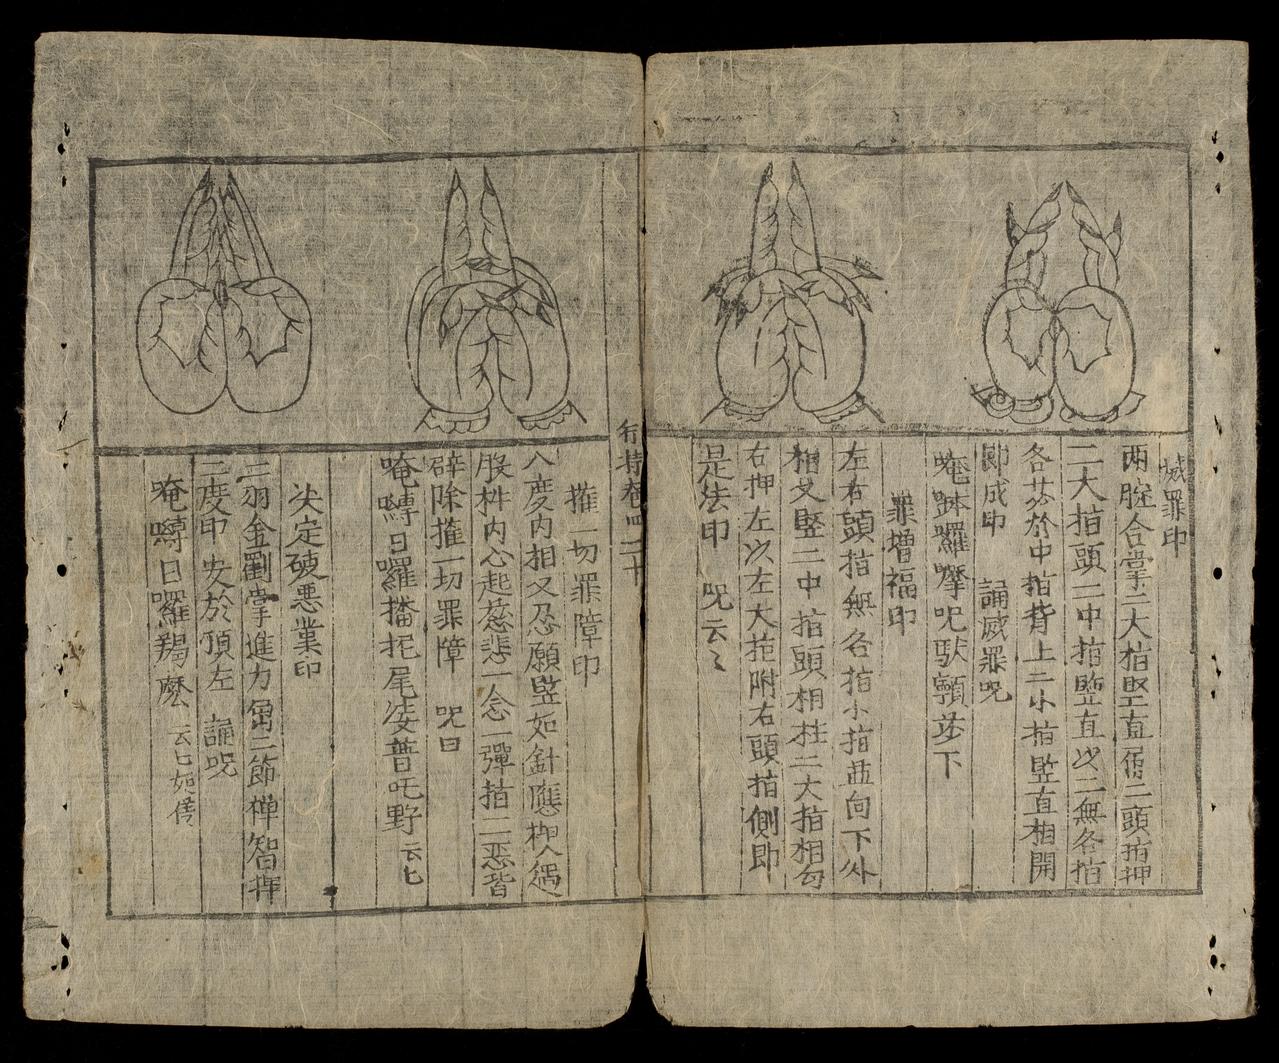 滅罪印
兩腕合掌二大指竪直屈二頭指押
二大指頭二中指竪直以二無名指
各於中指背上二小指竪直相開
即成印 誦滅罪呪
唵鉢囉摩呪馱顫莎下
罪增福印
左右頭指無名指小指並向下外
相叉竪二中指頭相柱二大指相勾
右押左次左大指附右頭指側即
是法印 呪云々
行持卷四 二十
摧一切罪障印
八度內相叉忍願竪如針應想遇
股杵內心起慈悲一念一彈指二惡皆
辟除摧一切罪障 呪曰
唵嚩日囉播抳尾娑普吒野 云七
决定硬惡業印
二羽金剛掌進力屈二節禪智押
二度甲安於頂左 誦呪
唵嚩日囉羯麼 云七